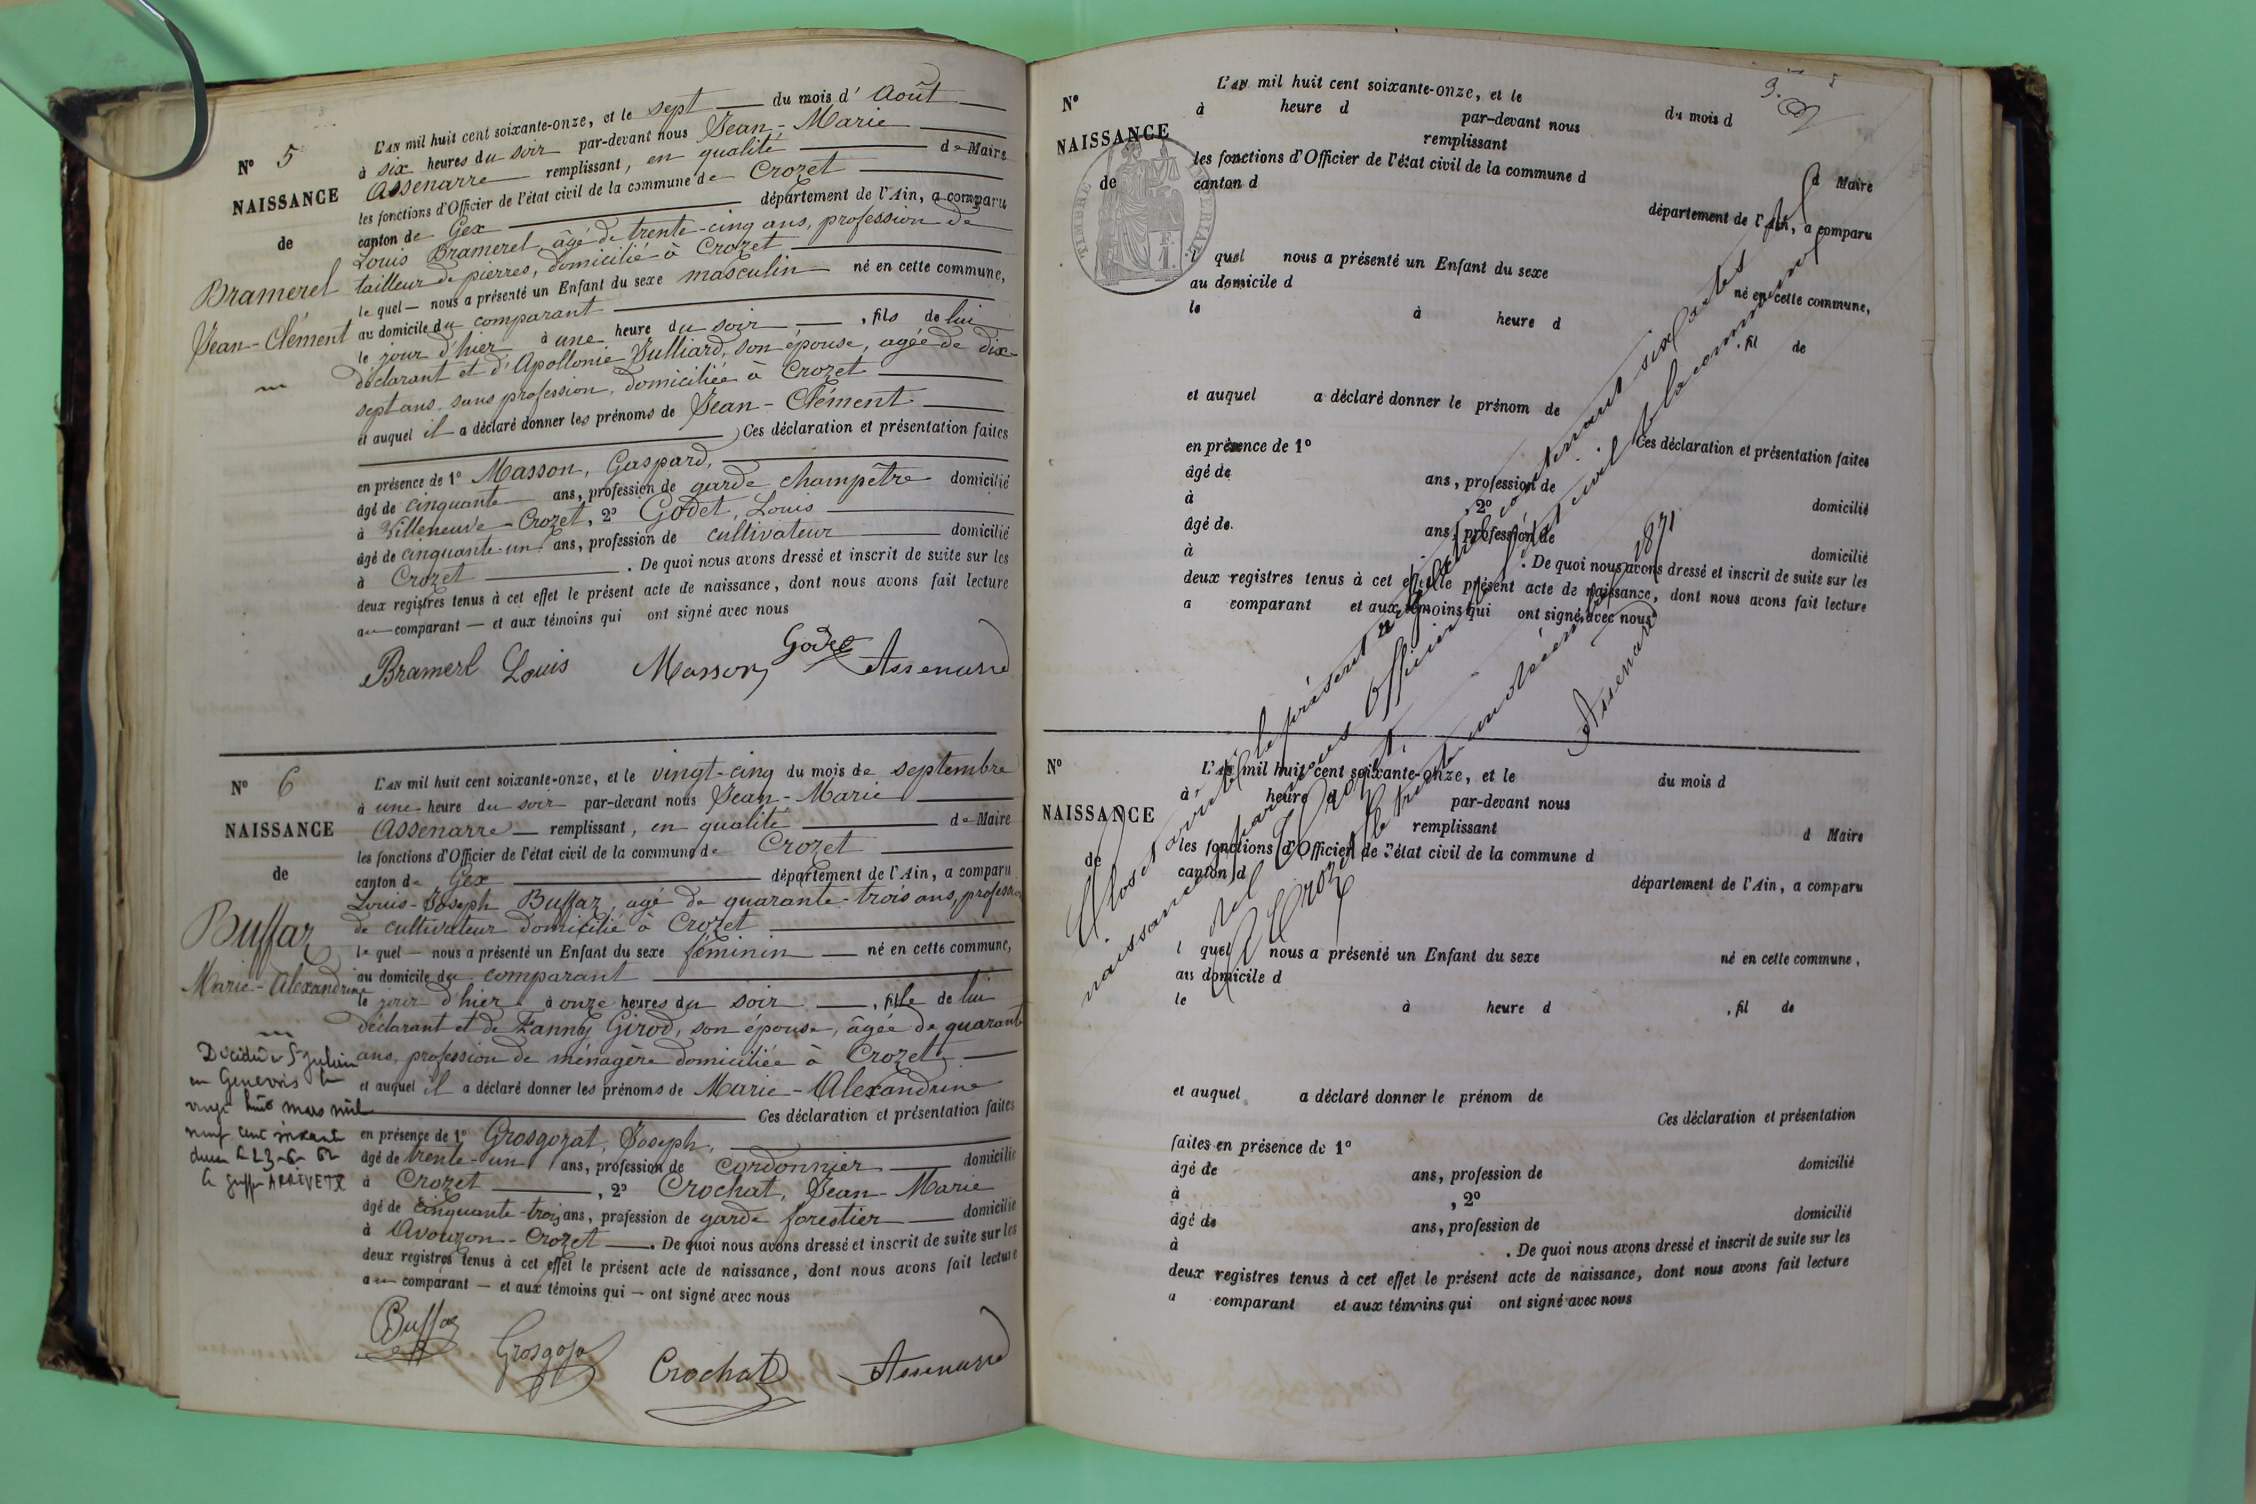 N° 5
NAISSANCE
de
Bramerel
Jean-Clément
L'AN mil huit cent soixante-onze, et le sept du mois d' Août
à six heures du soir par-devant nous Jean-Marie
Assenarre remplissant, en qualité de Maire
les fonctions d'Officier de l'état civil de la commune de Crozet
canton de Gex département de l'Ain, a comparu
Louis Bramerel, âgé de trente-cinq ans, profession de
tailleur de pierres, domicilié à Crozet
le quel nous a présenté un Enfant du sexe masculin né en cette commune,
au domicile du comparant
le jour d'hier à une heure du soir, fils de lui
déclarant et d'Apollonie Julliard, son épouse, agée de dix-
sept ans, sans profession, domiciliée à Crozet
et auquel il a déclaré donner les prénoms de Jean-Clément
Ces déclaration et présentation faites
en présence de 1° Masson, Gaspard,
âgé de cinquante ans, profession de garde champêtre domicilié
à Villeneuve-Crozet, 2° Godet, Louis
âgé de cinquante-un ans, profession de cultivateur domicilié
à Crozet. De quoi nous avons dressé et inscrit de suite sur les
deux registres tenus à cet effet le présent acte de naissance, dont nous avons fait lecture
au comparant — et aux témoins qui ont signé avec nous
Bramerl Louis Masson Godet Assenarre
N° 6
NAISSANCE
de
Buffaz
Marie-Alexandrine
Décidée à St Julien
en Genevois le
vingt huit mars mil
neuf cent
23-6-62
Le greffier ARRIVETX
L'AN mil huit cent soixante-onze, et le vingt-cinq du mois de septembre
à une heure du soir par-devant nous Jean-Marie
Assenarre remplissant, en qualité de Maire
les fonctions d'Officier de l'état civil de la commune de Crozet
canton de Gex département de l'Ain, a comparu
Louis-Joseph Buffaz, agé de quarante-trois ans, profession
de cultivateur domicilié à Crozet
le quel — nous a présenté un Enfant du sexe féminin né en cette commune,
au domicile du comparant
le jour d'hier à onze heures du soir, fille de lui
déclarant et de Fanny Girod, son épouse, âgée de quarante
ans, profession de ménagère domiciliée à Crozet
et auquel il a déclaré donner les prénoms de Marie-Alexandrine
Ces déclaration et présentation faites
en présence de 1° Grosgozat, Joseph,
âgé de trente-un ans, profession de cordonnier domicilié
à Crozet, 2° Crochat, Jean-Marie
âgé de cinquante-trois ans, profession de garde forestier domicilié
à Avouzon-Crozet. De quoi nous avons dressé et inscrit de suite sur les
deux registres tenus à cet effet le présent acte de naissance, dont nous avons fait lecture
au comparant — et aux témoins qui — ont signé avec nous
Buffaz Grosgoja Crochat Assenarre
N°
NAISSANCE
de
TIMBRE IMPÉRIAL
L'AN mil huit cent soixante-onze, et le du mois d
à heure d par-devant nous
remplissant d Maire
les fonctions d'Officier de l'état civil de la commune d
canton d département de l'Ain, a comparu
l quel nous a présenté un Enfant du sexe né en cette commune,
au domicile d
le à heure d, fil de
et auquel a déclaré donner le prénom de
Ces déclaration et présentation faites
en présence de 1°
âgé de ans, profession de domicilié
à, 2°
âgé de ans, profession de domicilié
à. De quoi nous avons dressé et inscrit de suite sur les
deux registres tenus à cet effet le présent acte de naissance, dont nous avons fait lecture
a comparant et aux témoins qui ont signé avec nous
Clos et arrêté le présent registre contenant six actes de
naissance par nous Officier de l'état civil de la commune
de Crozet
A Crozet le trente un décembre 1871
Assenarre
N°
NAISSANCE
de
L'AN mil huit cent soixante-onze, et le du mois d
à heure d par-devant nous
remplissant d Maire
les fonctions d'Officier de l'état civil de la commune d
canton d département de l'Ain, a comparu
l quel nous a présenté un Enfant du sexe né en cette commune,
au domicile d
le à heure d, fil de
et auquel a déclaré donner le prénom de
Ces déclaration et présentation
faites en présence de 1°
âgé de ans, profession de domicilié
à, 2°
âgé de ans, profession de domicilié
à. De quoi nous avons dressé et inscrit de suite sur les
deux registres tenus à cet effet le présent acte de naissance, dont nous avons fait lecture
a comparant et aux témoins qui ont signé avec nous